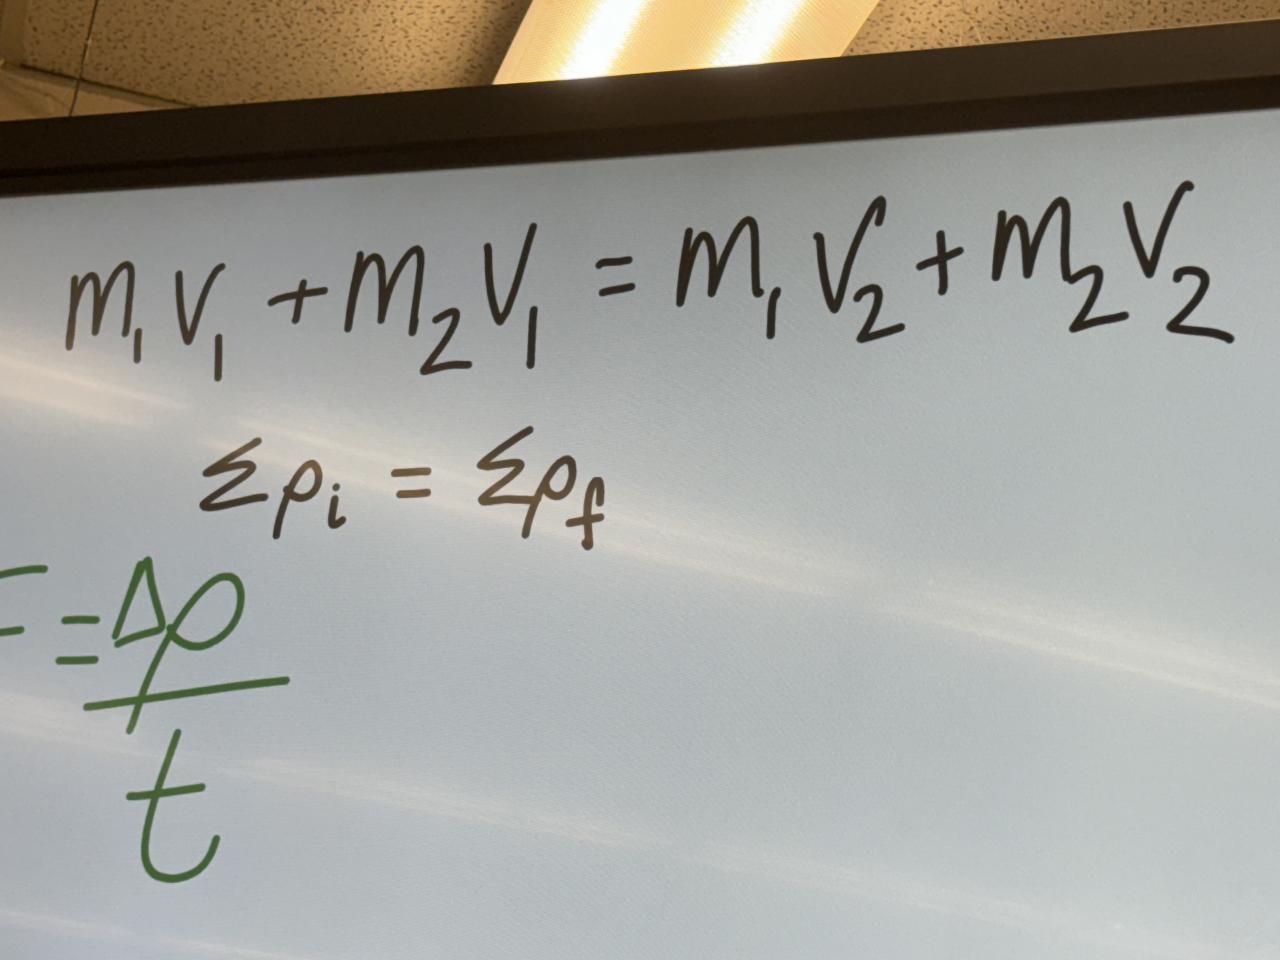 m₁v₁ + m₂v₁ = m₁v₂ + m₂v₂
Σpᵢ = Σp_f
F = Δp/t